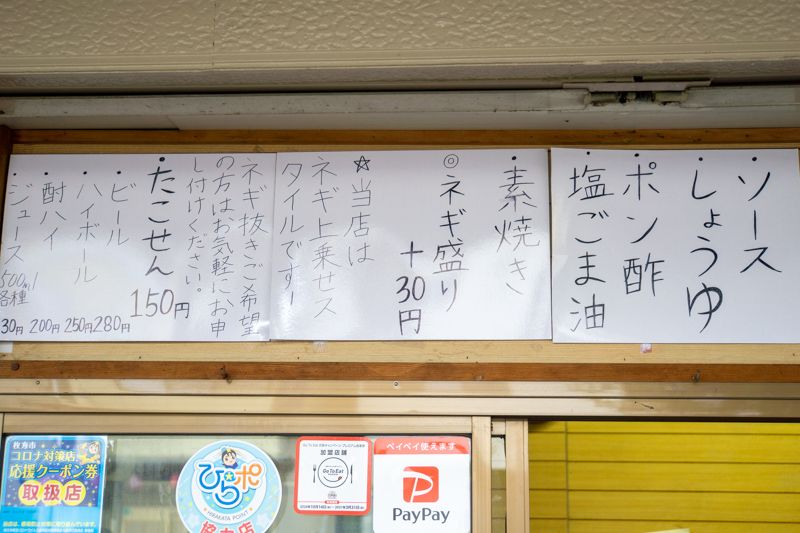 ・ソース
・しょうゆ
・ポン酢
・塩ごま油
・素焼き
◎ネギ盛り
+30円
☆当店は
ネギ上乗せス
タイルですー
ネギ抜きご希望
の方はお気軽にお申
し付けください。
・たこせん
150円
・ビール
280円
・ハイボール
250円
・酎ハイ
200円
・ジュース
500ml
各種
30円
枚方市
コロナ対策店
応援クーポン券
取扱店
ひらポ
HIRAKATA POINT
協力店
加盟店舗
Go To Eat
ペイペイ使えます
PayPay